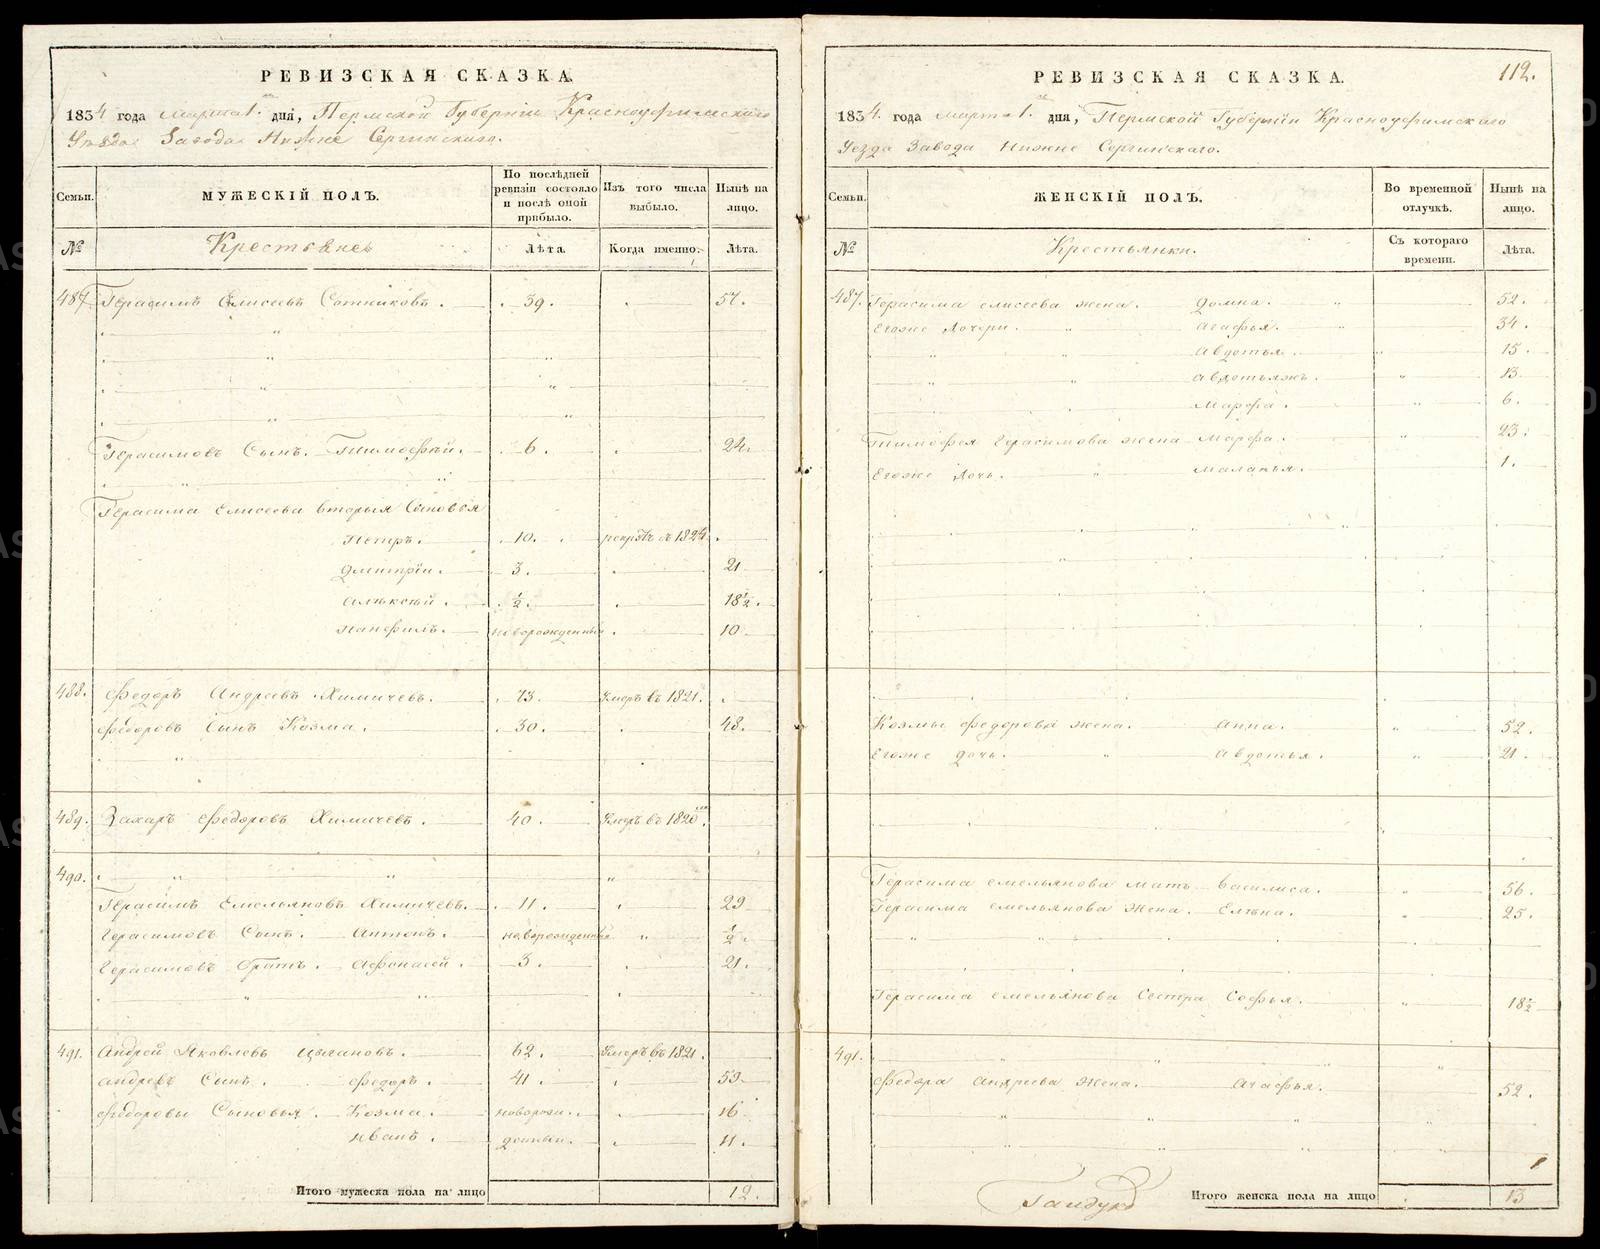 РЕВИЗСКАЯ СКАЗКА.
1834 года марта 1. дня, Пермской Губернiи Красноуфимскаго
Уезда Завода Нижне Сергинскаго.
Семьи.
МУЖЕСКІЙ ПОЛЪ.
По послѣдней ревизіи состояло и послѣ оной прибыло.
Изъ того числа выбыло.
Нынѣ на лицо.
№
Крестьяне
Лѣта.
Когда именно.
Лѣта.
487. Герасимъ Елисеевъ Сотниковъ. 39. 57.
Герасимовъ Сынъ. Тимофѣй. 6. 24.
Герасима Елисеева вторыя Сыновья
Петръ. 10. рекрутъ въ 1824.
Дмитрiй. 3. 21
Алѣксѣй. ½. 18½.
Панфилъ. новорожденный. 10
488. Федоръ Андреевъ Химичевъ. 73. Умеръ въ 1821.
Федоровъ Сынъ Козма. 30. 48.
489. Захаръ Федоровъ Химичевъ. 40. Умеръ въ 1820.
490.
Герасимъ Емельяновъ Химичевъ. 11. 29
Герасимовъ Сынъ. Антонъ. новорожденный ½.
Герасимовъ братъ. Афонасей. 3. 21.
491. Андрей Яковлевъ Цыгановъ. 62. Умеръ въ 1821.
Андреевъ Сынъ. Федоръ. 41. 59
Федоровы Сыновья. Козма. новорож. 16
Иванъ. денные. 11.
Итого мужеска пола на лицо 12.
112.
РЕВИЗСКАЯ СКАЗКА.
1834. года марта 1. дня, Пермской Губернiи Красноуфимскаго
Уезда Завода Нижне Сергинскаго.
Семьи.
ЖЕНСКІЙ ПОЛЪ.
Во временной отлучкѣ.
Нынѣ на лицо.
№
Крестьянки.
Съ котораго времени.
Лѣта.
487. Герасима Елисеева жена. Домна. 52.
Егоже Дочери. Агафья. 34.
Авдотья. 15.
Авдотьяжъ. 13.
Марфа. 6.
Тимофея Герасимова жена Марфа. 23.
Егоже Дочь. Маланья. 1.
Козмы Федорова жена. Анна. 52.
Егоже дочь. Авдотья. 21.
Герасима Емельянова мать Василиса. 56.
Герасима Емельянова Жена. Елѣна. 25.
Герасима Емельянова Сестра Софья. 18½
491.
Федора Андреева Жена. Агафья. 52.
Итого женска пола на лицо 13